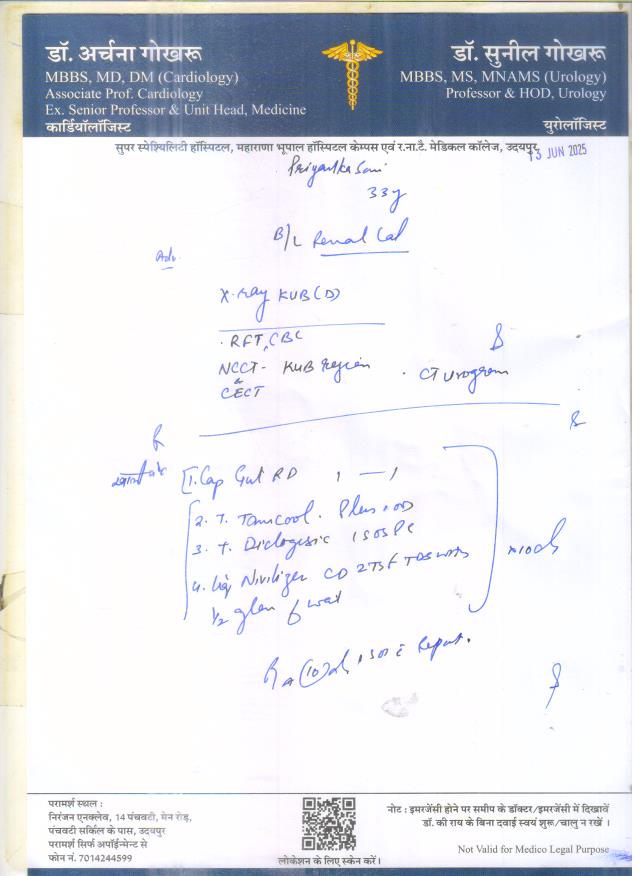 डॉ. अर्चना गोखरू
MBBS, MD, DM (Cardiology)
Associate Prof. Cardiology
Ex. Senior Professor & Unit Head, Medicine
कार्डियॉलॉजिस्ट
डॉ. सुनील गोखरू
MBBS, MS, MNAMS (Urology)
Professor & HOD, Urology
युरोलॉजिस्ट
सुपर स्पेश्यिलिटी हॉस्पिटल, महाराणा भूपाल हॉस्पिटल केम्पस एवं र.ना.टै. मेडिकल कॉलेज, उदयपुर
13 JUN 2025
Priyanka Soni
33y
B/L Renal Cal
Adv.
X-ray KUB (D)
RFT, CBC
NCCT - KUB region
&
CECT
CT Urogram
1. Cap Gut RD 1 — 1
2. T. Tamcool Plus OD
3. T. Diclogesic 1 SOS
4. Liq Nivilizer CD 2TSF TDS with
1/2 glass of wat
x 10 d
परामर्श स्थल :
निरंजन एनक्लेव, 14 पंचवटी, मेन रोड़,
पंचवटी सर्किल के पास, उदयपुर
परामर्श सिर्फ अपॉईन्मेन्ट से
फोन नं. 7014244599
लोकेशन के लिए स्केन करें।
नोट : इमरजेंसी होने पर समीप के डॉक्टर/इमरजेंसी में दिखावें
डॉ. की राय के बिना दवाई स्वयं शुरू/चालु न रखें ।
Not Valid for Medico Legal Purpose